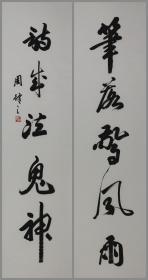 筆落驚風雨
詩成泣鬼神
周